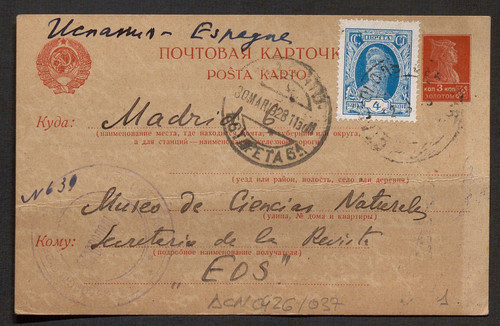 Испания - Espagne
ПОЧТОВАЯ КАРТОЧК
POŜTA KARTO
ПОЧТА
4
КОП 3 КОП
ЗОЛОТОМ
Куда: Madrid
(наименование места, где находится почта, и губернии или округа,
а для станций – наименование железной дороги)
№ 639
(уезд или район, волость, село или деревня)
Museo de Ciencias Naturales
(улица, № дома и квартиры)
Кому: Secretaria de la Revista
(подробное наименование получателя)
„EOS"
1